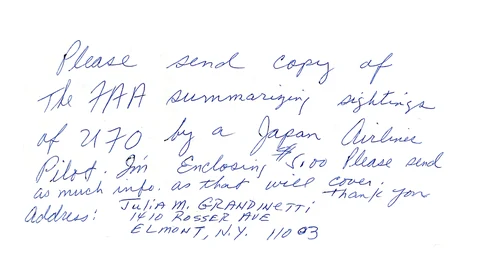 Please send copy of
the FAA summarizing sightings
of UFO by a Japan Airlines
Pilot. I'm Enclosing $5.00 Please send
as much info. as that will cover.
Thank you
Address: Julia M. GRANDINETTI
1410 ROSSER AVE
ELMONT, N.Y. 11003